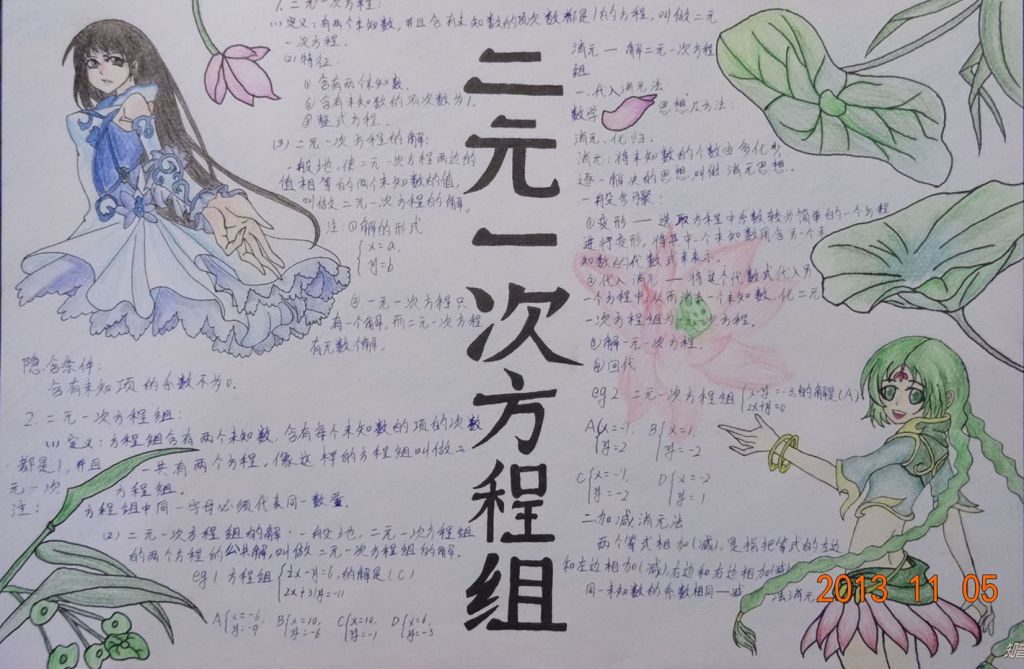 1. 二元一次方程:
(1) 定义:有两个未知数,并且含有未知数的项次数都是1的方程,叫做二元
一次方程.
(2) 特征:
① 含有两个未知数.
② 含有未知数的项次数为1.
③ 整式方程.
(3) 二元一次方程的解:
一般地,使二元一次方程两边的
值相等的两个未知数的值,
叫做二元一次方程的解.
注:①解的形式
{x=a,
y=b
② 一元一次方程只
有一个解,而二元一次方程
有无数个解.
隐含条件:
含有未知项的系数不为0.
2. 二元一次方程组:
(1) 定义:方程组含有两个未知数,含有每个未知数的项的次数
都是1,并且一共有两个方程,像这样的方程组叫做二
元一次方程组.
注:方程组中同一字母必须代表同一数量.
(2) 二元一次方程组的解:一般地,二元一次方程组
的两个方程的公共解,叫做二元一次方程组的解.
eg1 方程组{2x-y=6,的解是(C)
2x+3y=-11
A{x=-6, B{x=10, C{x=10, D{x=6,
y=-9 y=-6 y=-1 y=-3
二元一次方程组
消元 — 解二元一次方程
组
一.代入消元法
数学思想及方法:
消元.化归.
消元:将未知数的个数由多化少,
逐一解决的思想,叫做消元思想.
一般步骤:
①变形 — 选取方程中系数较为简单的一个方程
进行变形,将其中一个未知数用含另一个未
知数的代数式来表示.
②代入消元 — 将这个代数式代入另
一个方程中,从而消去一个未知数,化二元
一次方程组为一元一次方程.
③解一元一次方程.
④回代
eg2 二元一次方程组{x-y=-3,的解是(A)
2x+y=0
A{x=-1, B{x=1,
y=2 y=-2
C{x=-1, D{x=-2
y=-2 y=1
二加减消元法
两个等式相加(减),是指把等式的左边
和左边相加(减),右边和右边相加(减)
同一未知数的系数相同一减法消元
2013 11 05